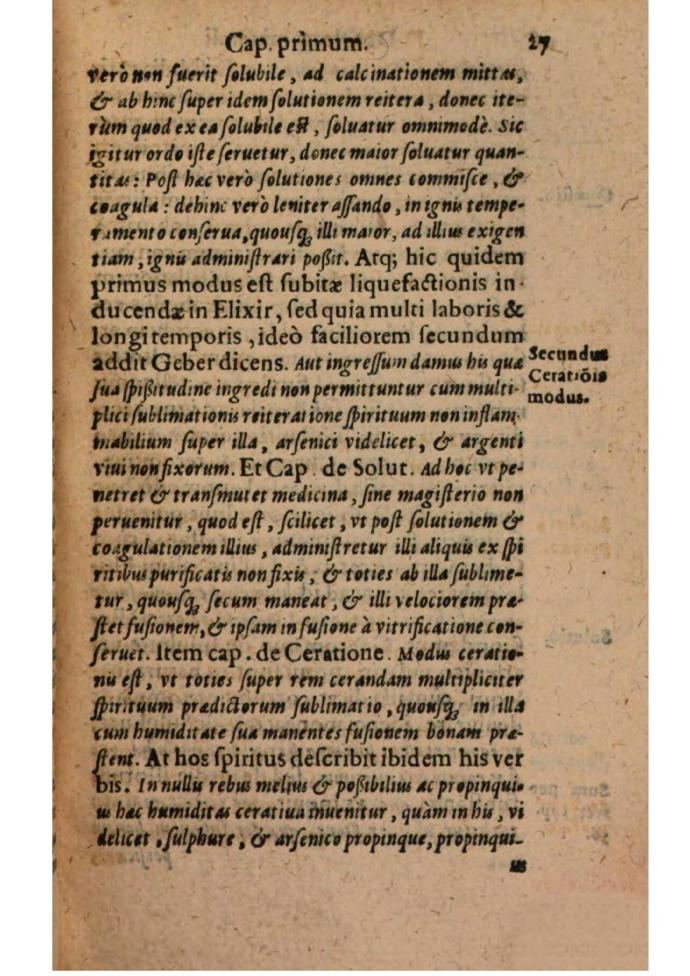 Cap. primum. 27
verò non fuerit ſolubile, ad calcinationem mittas,
& ab hinc ſuper idem ſolutionem reitera, donec ite-
rùm quod ex ea ſolubile eſt, ſoluatur omnimodè. Sic
igitur ordo iſte ſeruetur, donec maior ſoluatur quan-
titas: Poſt hac verò ſolutiones omnes commiſce, &
coagula: dehinc verò leniter aſſando, in ignis tempe-
ramento conſerua, quouſq; illi maior, ad illius exigen
tiam, ignis adminiſtrari poßit. Atq; hic quidem
primus modus eſt ſubitæ liquefactionis in-
ducendæ in Elixir, ſed quia multi laboris &
longi temporis, ideò faciliorem ſecundum
addit Geber dicens. Aut ingreſſum damus his quæ
Secundus
Ceratiõis
modus.
ſua ſpißitudine ingredi non permittuntur cum multi-
plici ſublimationis reiteratione ſpirituum non inflam-
mabilium ſuper illa, arſenici videlicet, & argenti
viui non fixorum. Et Cap. de Solut. Ad hoc vt pe-
netret & tranſmutet medicina, ſine magiſterio non
peruenitur, quod eſt, ſcilicet, vt poſt ſolutionem &
coagulationem illius, adminiſtretur illi aliquis ex ſpi
ritibus purificatis non fixis, & toties ab illa ſublime-
tur, quouſq; ſecum maneat, & illi velociorem præ-
ſtet fuſionem, & ipſam in fuſione à vitrificatione con-
ſeruet. Item cap. de Ceratione. Modus ceratio-
nis eſt, vt toties ſuper rem cerandam multipliciter
ſpirituum prædictorum ſublimatio, quouſq; in illa
cum humiditate ſua manentes fuſionem bonam præ-
ſtent. At hos ſpiritus deſcribit ibidem his ver
bis. In nullis rebus melius & poßibilius ac propinqui-
us hac humiditas ceratiua inuenitur, quàm in his, vi
delicet, ſulphure, & arſenico propinque, propinqui-
us